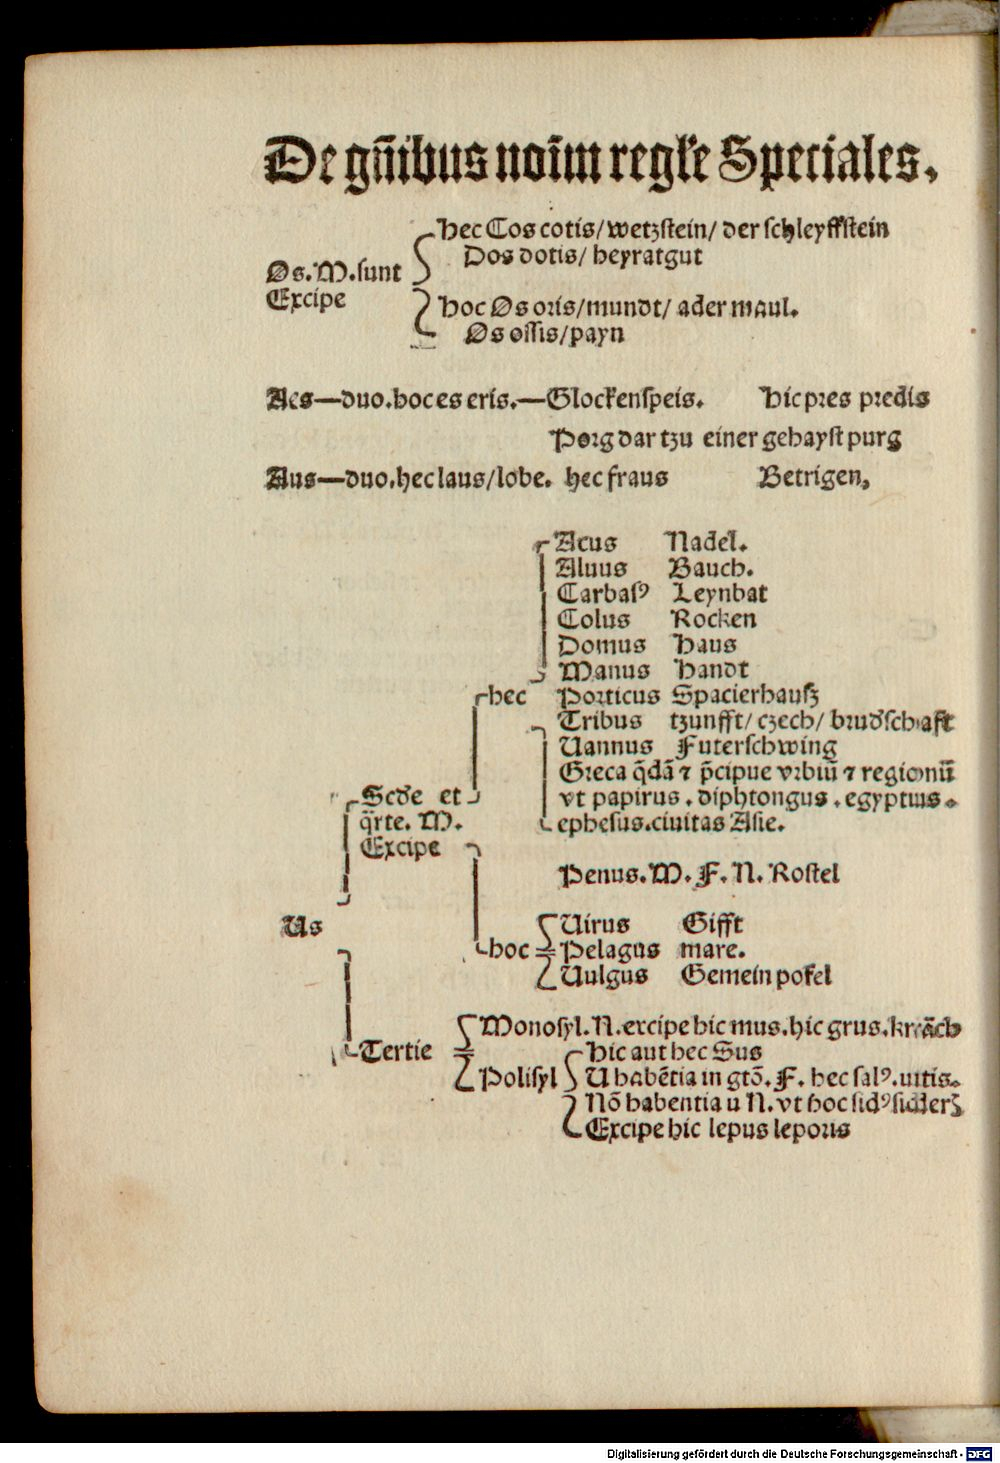 De gñibus noīm regl'e Speciales.
hec Cos cotis/wetzstein/der schleyffstein
Dos dotis/heyratgut
Os.M.sunt
Excipe
hoc Os oris/mundt/ader maul.
Os ossis/payn
Aes—duo.hoc es eris.—Glockenspeis. hic pres predis
Porg dar tzu einer gehayst purg
Aus—duo.hec laus/lobe. hec fraus Betrigen,
Acus Nadel.
Aluus Bauch.
Carbasꝰ Leynbat
Colus Rocken
Domus Haus
Manus Handt
hec Porticus Spacierhausz
Tribus tzunfft/czech/brud'schafft
Uannus Futerschwing
Greca q̄dā ⁊ p̄cipue vrbiū ⁊ regionū
Scd'e et vt papirus.diphtongus.egyptus.
q̄rte.M. ephesus.ciuitas Asie.
Excipe
Penus.M.F.N.Rostel
Us Uirus Gifft
hoc Pelagus mare.
Uulgus Gemein pofel
Monosyl.N.excipe hic mus.hic grus.krāch
Tertie hic aut hec Sus
Polisyl U habētia in gtō.F. hec salꝰ.utis.
Nō habentia u N.vt hoc sidꝰ siderꝭ
Excipe hic lepus leporis
Digitalisierung gefördert durch die Deutsche Forschungsgemeinschaft - DFG